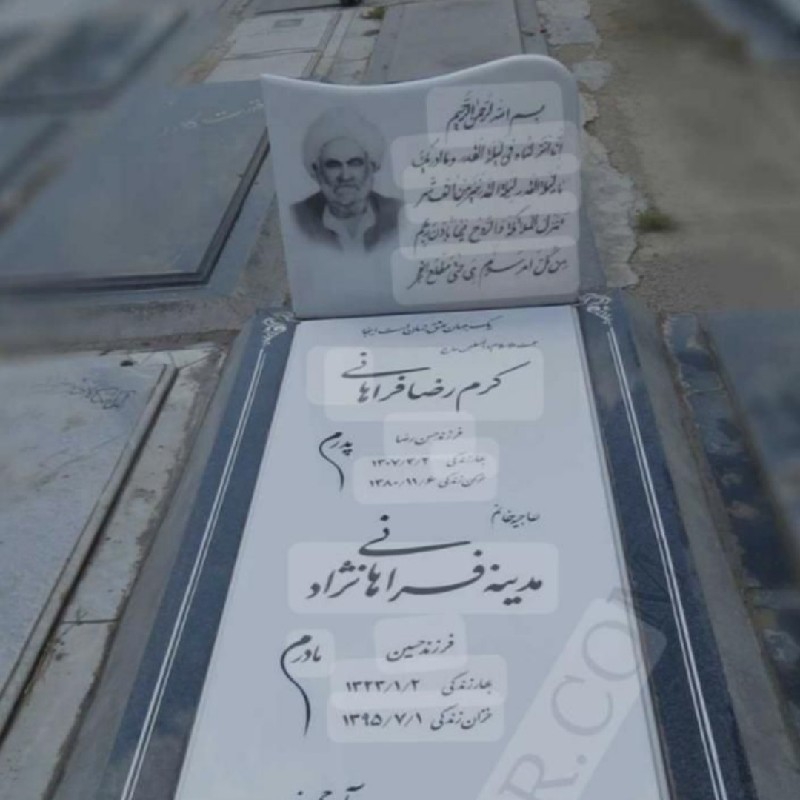 بسم الله الرحمن الرحیم
انا انزلناه فی لیلة القدر وما ادریک
ما لیلة القدر لیلة القدر خیر من الف شهر
تنزل الملائکة والروح فیها باذن ربهم
من کل امر سلام هی حتی مطلع الفجر
کرم رضا فراهانی
فرزند حسن رضا
پدرم
بهار زندگی ۱۳۰۷/۳/۲
خزان زندگی ۱۳۸۰/۱۱/۶
حاجیه خانم
مدینه فراهانی نژاد
فرزند حسین
مادرم
بهار زندگی ۱۳۲۳/۱/۲
خزان زندگی ۱۳۹۵/۷/۱
R.CO